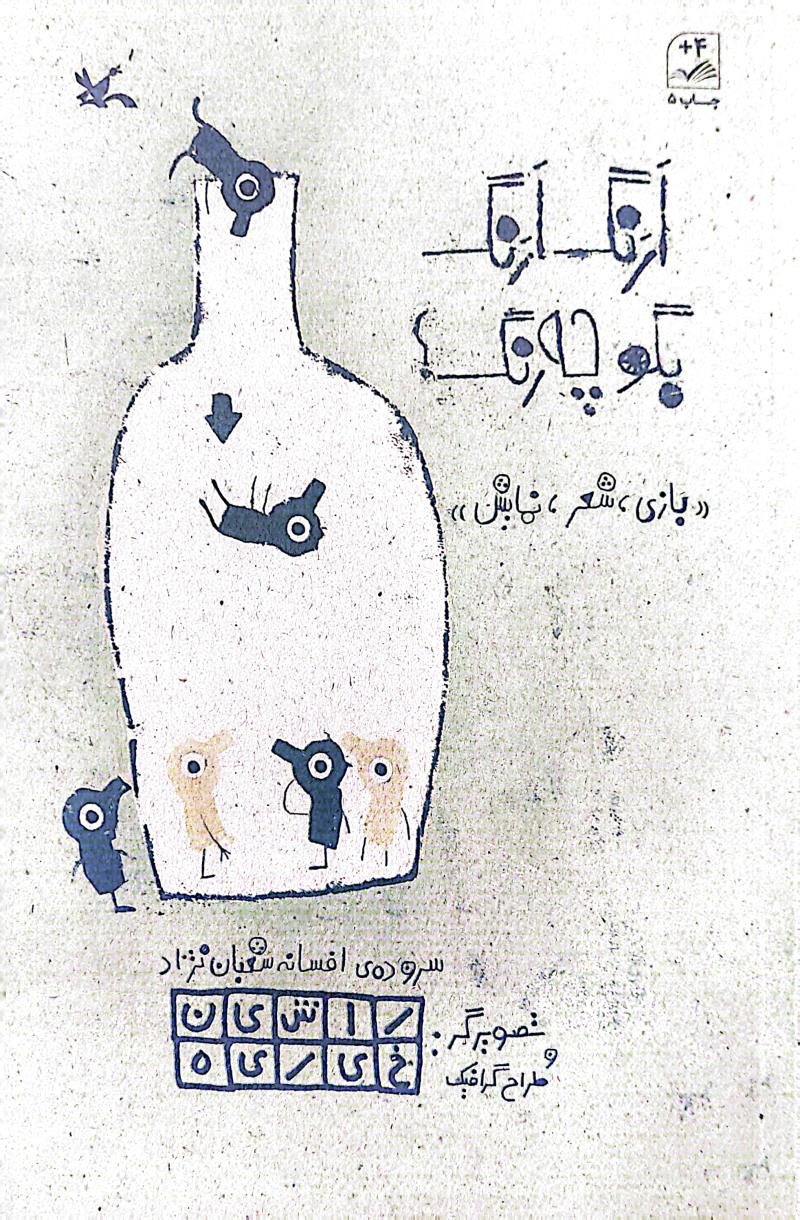 +۴
چاپ ۵
اَرَنگ اَرَنگ
بگو چه رنگ؟
«بازی، شعر، نمایش»
سروده‌ی افسانه شعبان‌نژاد
تصویرگر و طراح گرافیک:
ر ا ش ی ن
خ ی ر ی ه